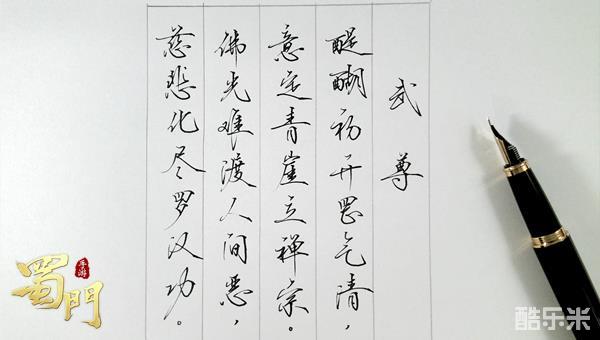 武尊
醍醐初开罡气清，
意定青崖立禅宗。
佛光难渡人间恶，
慈悲化尽罗汉功。
蜀門
手游
酷乐米